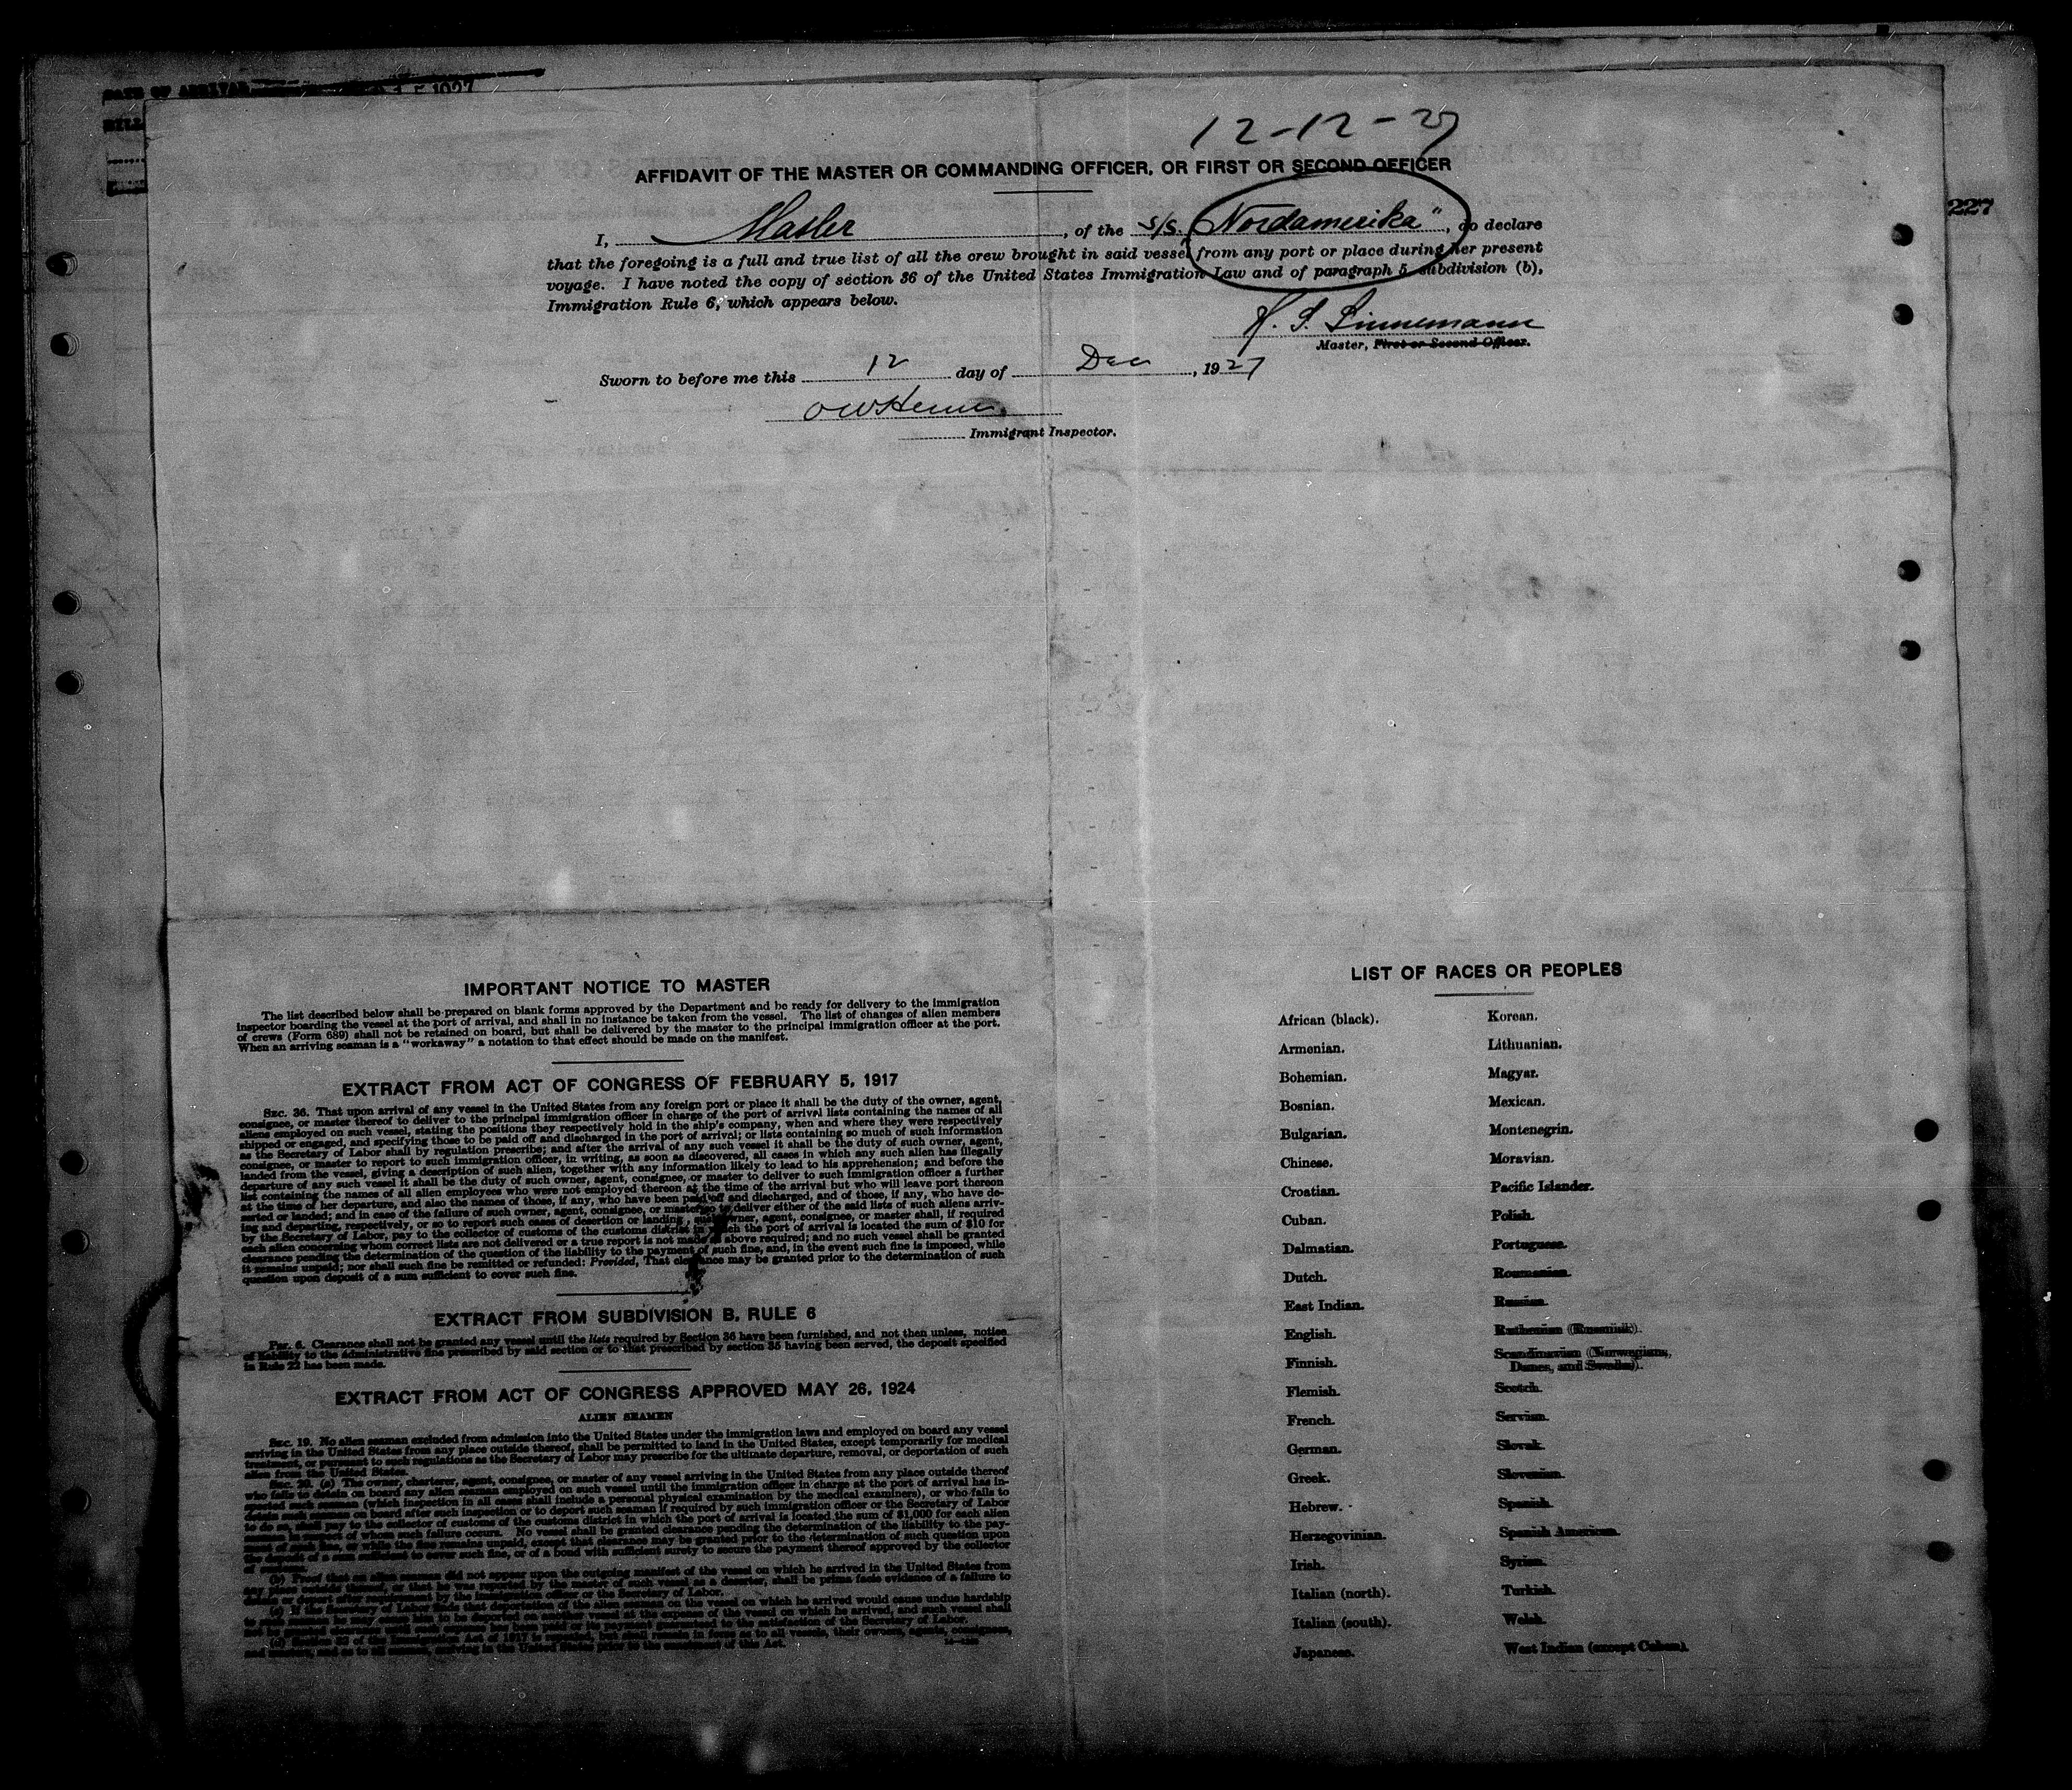 DATE OF ARRIVAL
1927
12-12-27
227
AFFIDAVIT OF THE MASTER OR COMMANDING OFFICER, OR FIRST OR SECOND OFFICER
I, Master, of the S/S. "Nordamerika", do declare
that the foregoing is a full and true list of all the crew brought in said vessel from any port or place during her present
voyage. I have noted the copy of section 36 of the United States Immigration Law and of paragraph 5, subdivision (b),
Immigration Rule 6, which appears below.
Linnemann
Master, First or Second Officer.
Sworn to before me this 12 day of Dec, 1927
Immigrant Inspector.
IMPORTANT NOTICE TO MASTER
The list described below shall be prepared on blank forms approved by the Department and be ready for delivery to the immigration
inspector boarding the vessel at the port of arrival, and shall in no instance be taken from the vessel. The list of changes of alien members
of crews (Form 689) shall not be retained on board, but shall be delivered by the master to the principal immigration officer at the port.
When an arriving seaman is a "workaway" a notation to that effect should be made on the manifest.
EXTRACT FROM ACT OF CONGRESS OF FEBRUARY 5, 1917
SEC. 36. That upon arrival of any vessel in the United States from any foreign port or place it shall be the duty of the owner, agent,
consignee, or master thereof to deliver to the principal immigration officer in charge of the port of arrival lists containing the names of all
aliens employed on such vessel, stating the positions they respectively hold in the ship's company, when and where they were respectively
shipped or engaged, and specifying those to be paid off and discharged in the port of arrival; or lists containing so much of such information
as the Secretary of Labor shall by regulation prescribe; and after the arrival of any such vessel it shall be the duty of such owner, agent,
consignee, or master to report to such immigration officer, in writing, as soon as discovered, all cases in which any such alien has illegally
landed from the vessel, giving a description of such alien, together with any information likely to lead to his apprehension; and before the
departure of any such vessel it shall be the duty of such owner, agent, consignee, or master to deliver to such immigration officer a further
list containing the names of all alien employees who were not employed thereon at the time of the arrival but who will leave port thereon
at the time of her departure, and also the names of those, if any, who have been paid off and discharged, and of those, if any, who have de-
serted or landed; and in case of the failure of such owner, agent, consignee, or master so to deliver either of the said lists of such aliens arriv-
ing and departing, respectively, or so to report such cases of desertion or landing, such owner, agent, consignee, or master shall, if required
by the Secretary of Labor, pay to the collector of customs of the customs district in which the port of arrival is located the sum of $10 for
each alien concerning whom correct lists are not delivered or a true report is not made as above required; and no such vessel shall be granted
clearance pending the determination of the question of the liability to the payment of such fine, and, in the event such fine is imposed, while
it remains unpaid; nor shall such fine be remitted or refunded: Provided, That clearance may be granted prior to the determination of such
question upon deposit of a sum sufficient to cover such fine.
EXTRACT FROM SUBDIVISION B, RULE 6
PAR. 6. Clearance shall not be granted any vessel until the lists required by Section 36 have been furnished, and not then unless, notice
of liability to the administrative fine prescribed by said section or to that prescribed by section 35 having been served, the deposit specified
in Rule 22 has been made.
EXTRACT FROM ACT OF CONGRESS APPROVED MAY 26, 1924
ALIEN SEAMEN
SEC. 19. No alien seaman excluded from admission into the United States under the immigration laws and employed on board any vessel
arriving in the United States from any place outside thereof, shall be permitted to land in the United States, except temporarily for medical
treatment, or pursuant to such regulations as the Secretary of Labor may prescribe for the ultimate departure, removal, or deportation of such
alien from the United States.
SEC. 20. (a) The owner, charterer, agent, consignee, or master of any vessel arriving in the United States from any place outside thereof
who fails to detain on board any alien seaman employed on such vessel until the immigration officer in charge at the port of arrival has in-
spected such seaman (which inspection in all cases shall include a personal physical examination by the medical examiners), or who fails to
detain such seaman on board after such inspection or to deport such seaman if required by such immigration officer or the Secretary of Labor
to do so, shall pay to the collector of customs of the customs district in which the port of arrival is located the sum of $1,000 for each alien
seaman in respect of whom such failure occurs. No vessel shall be granted clearance pending the determination of the liability to the pay-
ment of such fine, or while the fine remains unpaid, except that clearance may be granted prior to the determination of such question upon
the deposit of a sum sufficient to cover such fine, or of a bond with sufficient surety to secure the payment thereof approved by the collector
of customs.
(b) Proof that an alien seaman did not appear upon the outgoing manifest of the vessel on which he arrived in the United States from
any place outside thereof, or that he was reported by the master of such vessel as a deserter, shall be prima facie evidence of a failure to
detain or deport after requirement by the immigration officer or the Secretary of Labor.
LIST OF RACES OR PEOPLES
African (black).
Armenian.
Bohemian.
Bosnian.
Bulgarian.
Chinese.
Croatian.
Cuban.
Dalmatian.
Dutch.
East Indian.
English.
Finnish.
Flemish.
French.
German.
Greek.
Hebrew.
Herzegovinian.
Irish.
Italian (north).
Italian (south).
Japanese.
Korean.
Lithuanian.
Magyar.
Mexican.
Montenegrin.
Moravian.
Pacific Islander.
Polish.
Portuguese.
Roumanian.
Russian.
Ruthenian (Russniak).
Scandinavian (Norwegians,
Danes, and Swedes).
Scotch.
Servian.
Slovak.
Slovenian.
Spanish.
Spanish American.
Syrian.
Turkish.
Welsh.
West Indian (except Cuban).